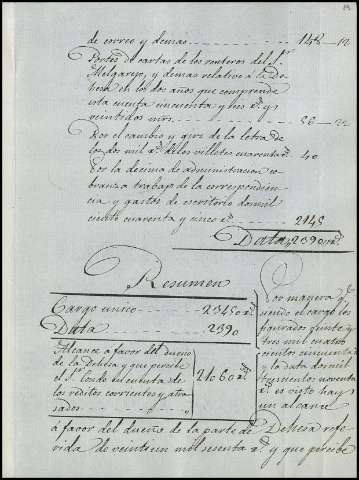 de correo y demas - - - - - - 148 - 12
Portes de cartas de los renteros del Sr.
Melgarejo, y demas relativo á la De-
hesa en los dos años que comprende
esta cuenta cincuenta y tres rs. y
veintidos mrs. - - - - 53 - 22
Por el cambio y giro de la letra de
los dos mil rs. de los villetes cuarenta rs. 40
Por la decima de administracion co-
branza trabajo de la correspondien-
cia y gastos de escritorio dos mil
ciento cuarenta y cinco rs. - - - 2145
Data 2390 rs.
Resumen
Cargo unico - - - 23450 rs.
Data - - - 2390
Alcance a favor del dueño
de la Dehesa y que percibe
el Sr. Conde en cuenta de
los reditos corrientes y atra-
sados - - - 21060 rs.
Por manera qe.
siendo el cargo los
figurados veinte y
tres mil cuatro
cientos cincuenta rs.
y la data dos mil
trescientos noventa
rs. es visto hay
un alcance
á favor del dueño de la parte de Dehesa refe-
rida de veinte y un mil sesenta rs. y que percibe